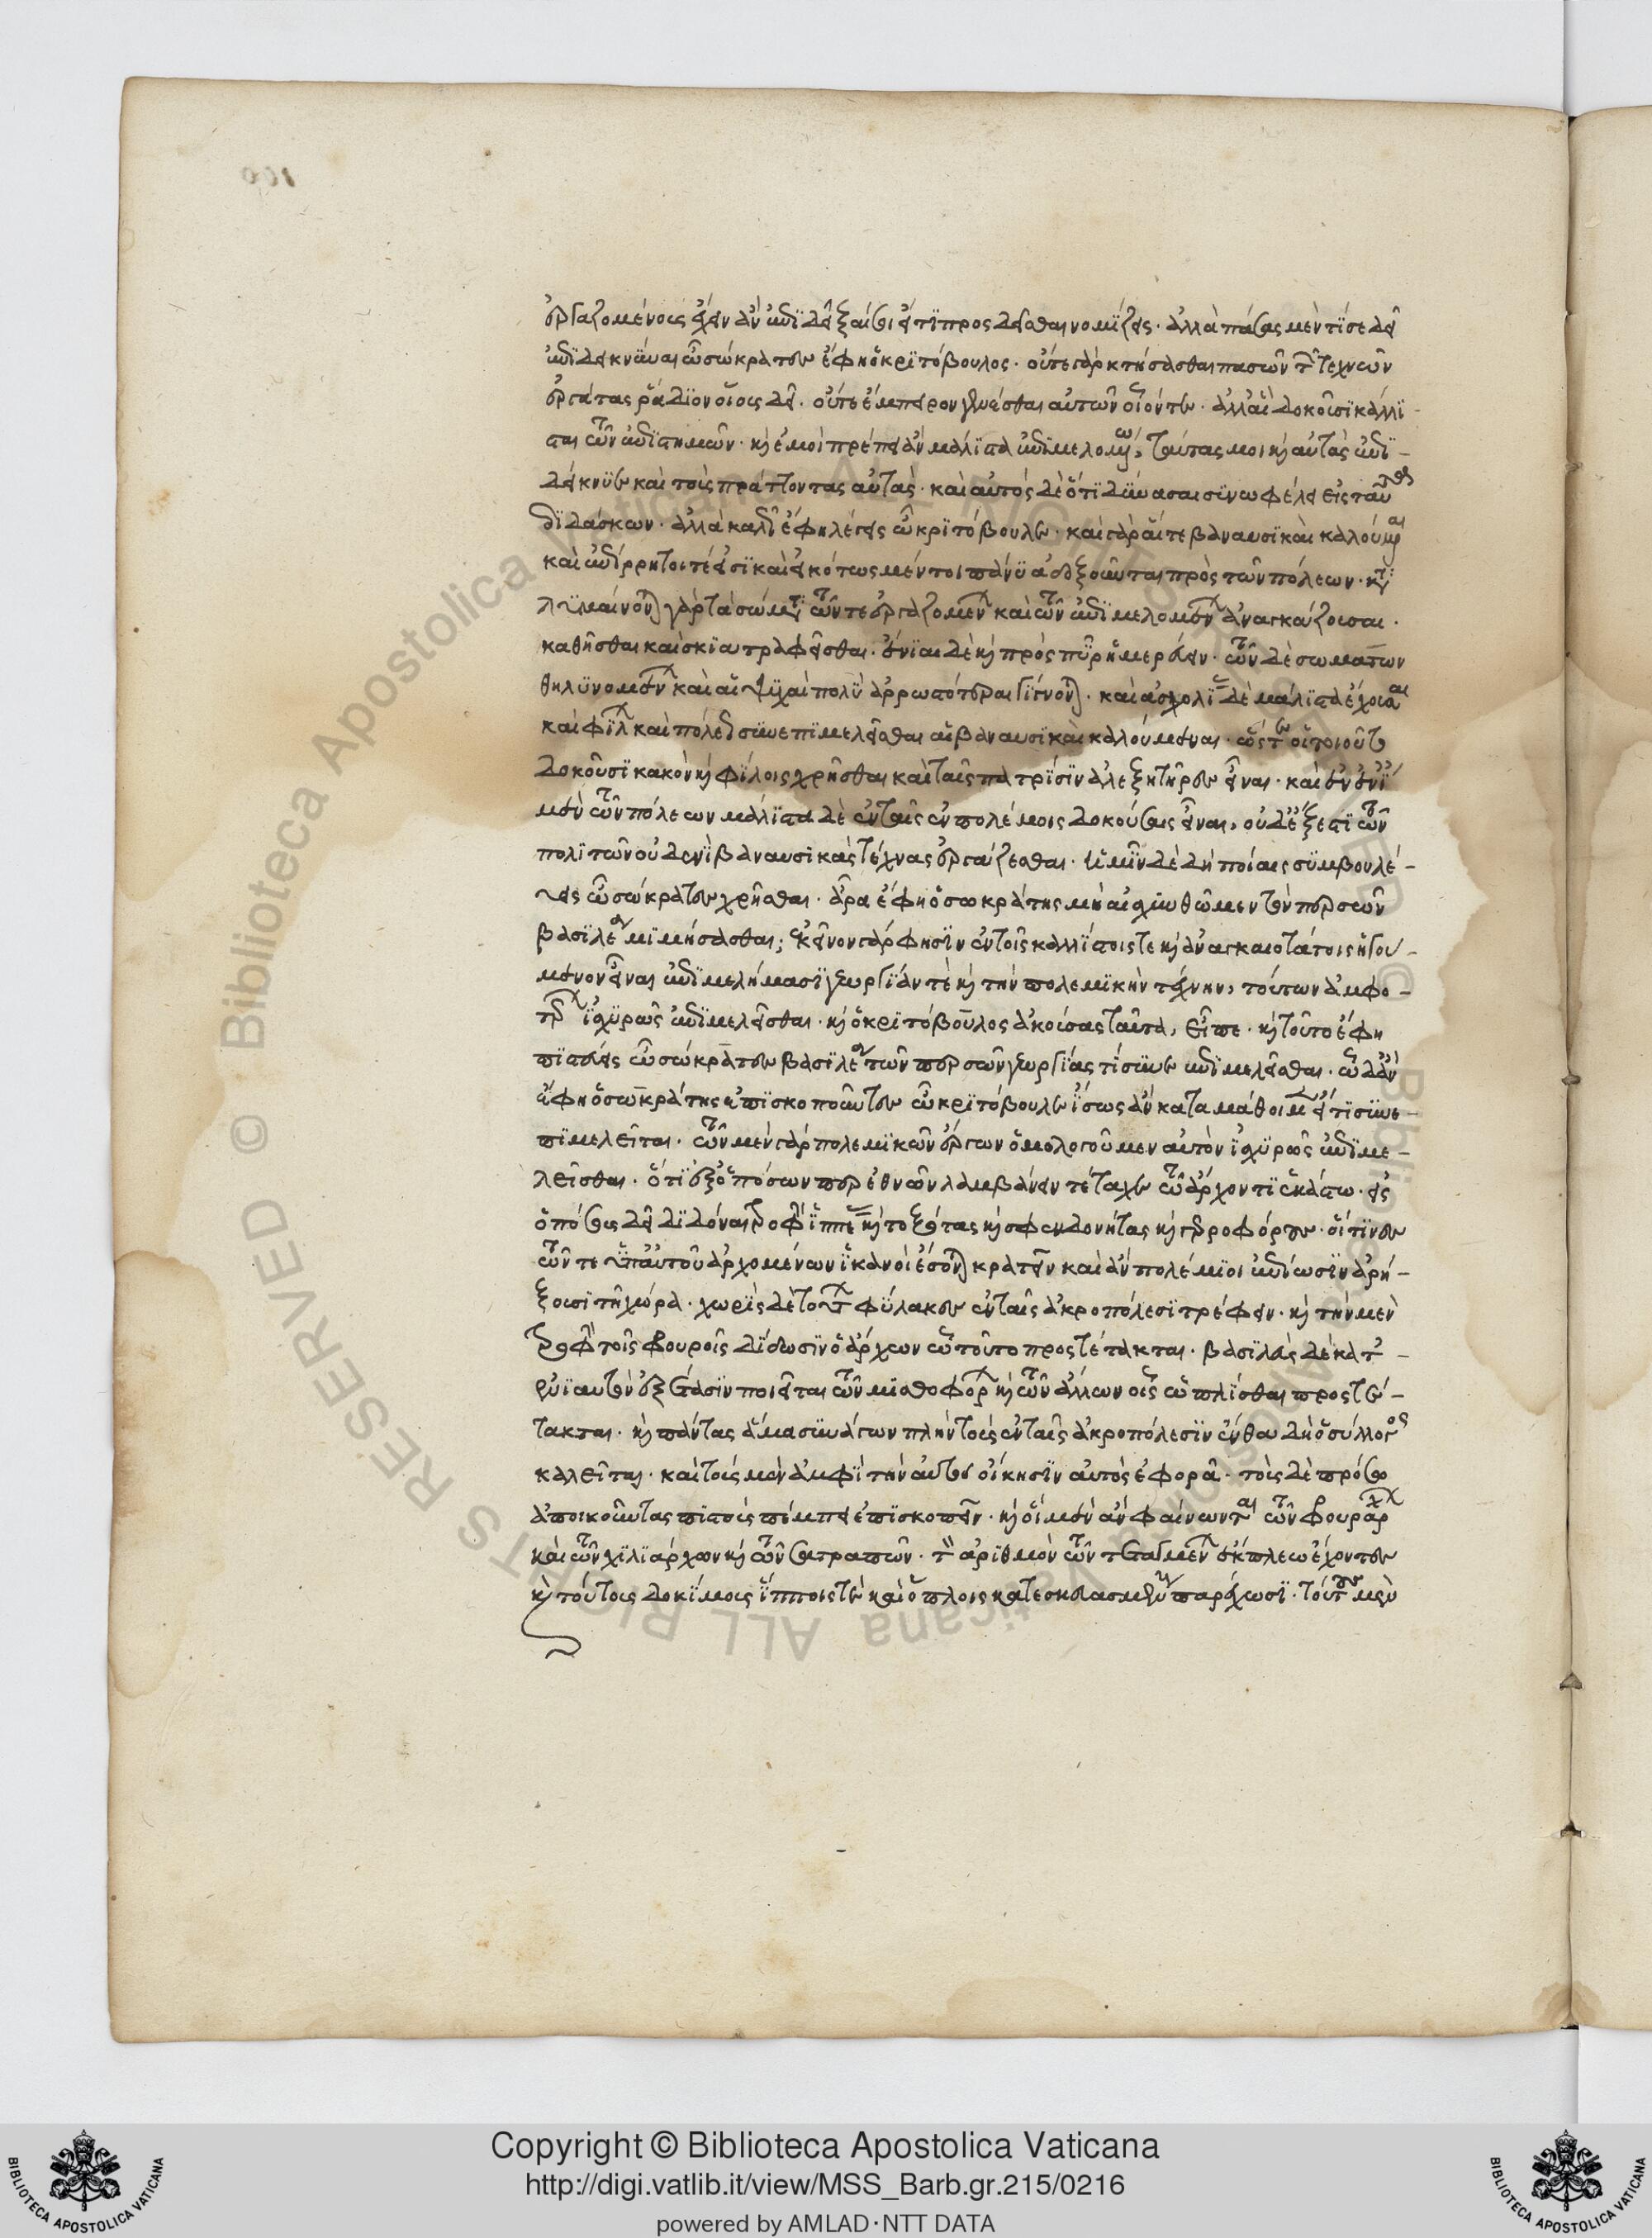 ἐργαζομένους ἔχειν ἂν ἐπιδεῖξαί σοι εἴ τι προσδεῖσθαι νομίζεις. ἀλλὰ πάσας μὲν τί σε δεῖ
ἐπιδεικνύναι ὦ σώκρατες ἔφη ὁ κριτόβουλος. οὔτε γὰρ κτήσασθαι πασῶν τῶν τεχνῶν
ἐργάτας ῥάδιον οἵους δεῖ. οὔτε ἔμπειρον γενέσθαι αὐτῶν οἷόν τε. ἀλλ' αἳ δοκοῦσι κάλλι-
σται τῶν ἐπιστημῶν. καὶ ἐμοὶ πρέποι ἂν μάλιστα ἐπιμελομένω, ταύτας μοι καὶ αὐτὰς ἐπι-
δείκνυε καὶ τοὺς πράττοντας αὐτὰς. καὶ αὐτὸς δὲ ὅτι δύνασαι συνωφέλει εἰς ταῦτα
διδάσκων. ἀλλὰ καλῶς ἔφη λέγεις ὦ κριτόβουλε. καὶ γὰρ αἵ τε βαναυσικαὶ καλούμεναι
καὶ ἐπίρρητοι τέ εἰσι καὶ εἰκότως μέντοι πάνυ ἀδοξοῦνται πρὸς τῶν πόλεων. κατα
λυμαίνονται γὰρ τὰ σώματα τῶν τε ἐργαζομένων καὶ τῶν ἐπιμελομένων ἀναγκάζουσαι.
καθῆσθαι καὶ σκιατραφεῖσθαι. ἔνιαι δὲ καὶ πρὸς πῦρ ἡμερεύειν. τῶν δὲ σωμάτων
θηλυνομένων καὶ αἱ ψυχαὶ πολὺ ἀρρωστότεραι γίγνονται. καὶ ἀσχολίας δὲ μάλιστα ἔχουσαι
καὶ φίλων καὶ πόλεως συνεπιμελεῖσθαι αἱ βαναυσικαὶ καλούμεναι. ὥστε οἱ τοιοῦτοι
δοκοῦσι κακοὶ καὶ φίλοις χρῆσθαι καὶ ταῖς πατρίσιν ἀλεξητῆρες εἶναι. καὶ ἐν ἐνίαις
μὲν τῶν πόλεων μάλιστα δὲ ἐν ταῖς ἐν πολέμοις δοκούσαις εἶναι, οὐδ' ἔξεστι τῶν
πολιτῶν οὐδενὶ βαναυσικὰς τέχνας ἐργάζεσθαι. ἡμῖν δὲ δὴ ποίαις συμβουλεύ-
εις ὦ σώκρατες χρῆσθαι. ἆρα ἔφη ὁ σωκράτης μὴ αἰσχυνθῶμεν τὸν περσῶν
βασιλέα μιμήσασθαι; ἐκεῖνον γάρ φησιν ἐν τοῖς καλλίστοις τε καὶ ἀναγκαιοτάτοις ἡγού-
μενον εἶναι ἐπιμελήμασι γεωργίαν τὲ καὶ τὴν πολεμικὴν τέχνην, τούτων ἀμφο-
τέρων ἰσχυρῶς ἐπιμελεῖσθαι. καὶ ὁ κριτόβουλος ἀκούσας ταῦτα, εἶπε. καὶ τοῦτο ἔφη
πιστεύεις ὦ σώκρατες βασιλέα τῶν περσῶν γεωργίας τί συν ἐπιμελεῖσθαι. ὧδ' ἂν
ἔφη ὁ σωκράτης ἐπισκοποῦντες ὦ κριτόβουλε ἴσως ἂν καταμάθοιμεν εἴ τι συνε-
πιμελεῖται. τῶν μὲν γὰρ πολεμικῶν ἔργων ὁμολογοῦμεν αὐτὸν ἰσχυρῶς ἐπιμε-
λεῖσθαι. ὅτι ἐξ ὁπόσων περ ἐθνῶν λαμβάνειν τέταχε τῷ ἄρχοντι ἑκάστω. εἰς
ὁπόσους δεῖ διδόναι τροφὴν ἱππέας καὶ τοξότας καὶ σφενδονήτας καὶ γερροφόρους. οἵτινες
τῶν τε ὑπ' αὐτοῦ ἀρχομένων ἱκανοὶ ἔσονται κρατεῖν καὶ ἂν πολέμιοι ἐπίωσιν ἀρή-
ξουσι τῇ χώρα. χωρὶς δὲ τούτων φύλακας ἐν ταῖς ἀκροπόλεσι τρέφειν. καὶ τὴν μὲν
τροφὴν τοῖς φρουροῖς δίδωσιν ὁ ἄρχων ᾧ τοῦτο προστέτακται. βασιλεὺς δὲ κατ' -
ἐνιαυτὸν ἐξέτασιν ποιεῖται τῶν μισθοφόρων καὶ τῶν ἄλλων οἷς ὡπλίσθαι προστέ-
τακται. καὶ πάντας ἅμα συνάγων πλὴν τοὺς ἐν ταῖς ἀκροπόλεσιν ἔνθα δὴ ὁ σύλλογος
καλεῖται. καὶ τοὺς μὲν ἀμφὶ τὴν αὐτοῦ οἴκησιν αὐτὸς ἐφορᾶ. τοὺς δὲ πρόσω
ἀποικοῦντας πιστοὺς πέμπει ἐπισκοπεῖν. καὶ οἳ μὲν ἂν φαίνωνται τῶν φρουράρχων
καὶ τῶν χιλιάρχων καὶ τῶν σατραπῶν. τὸν ἀριθμὸν τῶν τεταγμένων ἔκπλεω ἔχοντες
καὶ τούτους δοκίμοις ἵπποις τὲ καὶ ὅπλοις κατεσκευασμένους παρέχωσι. τούτους μὲν